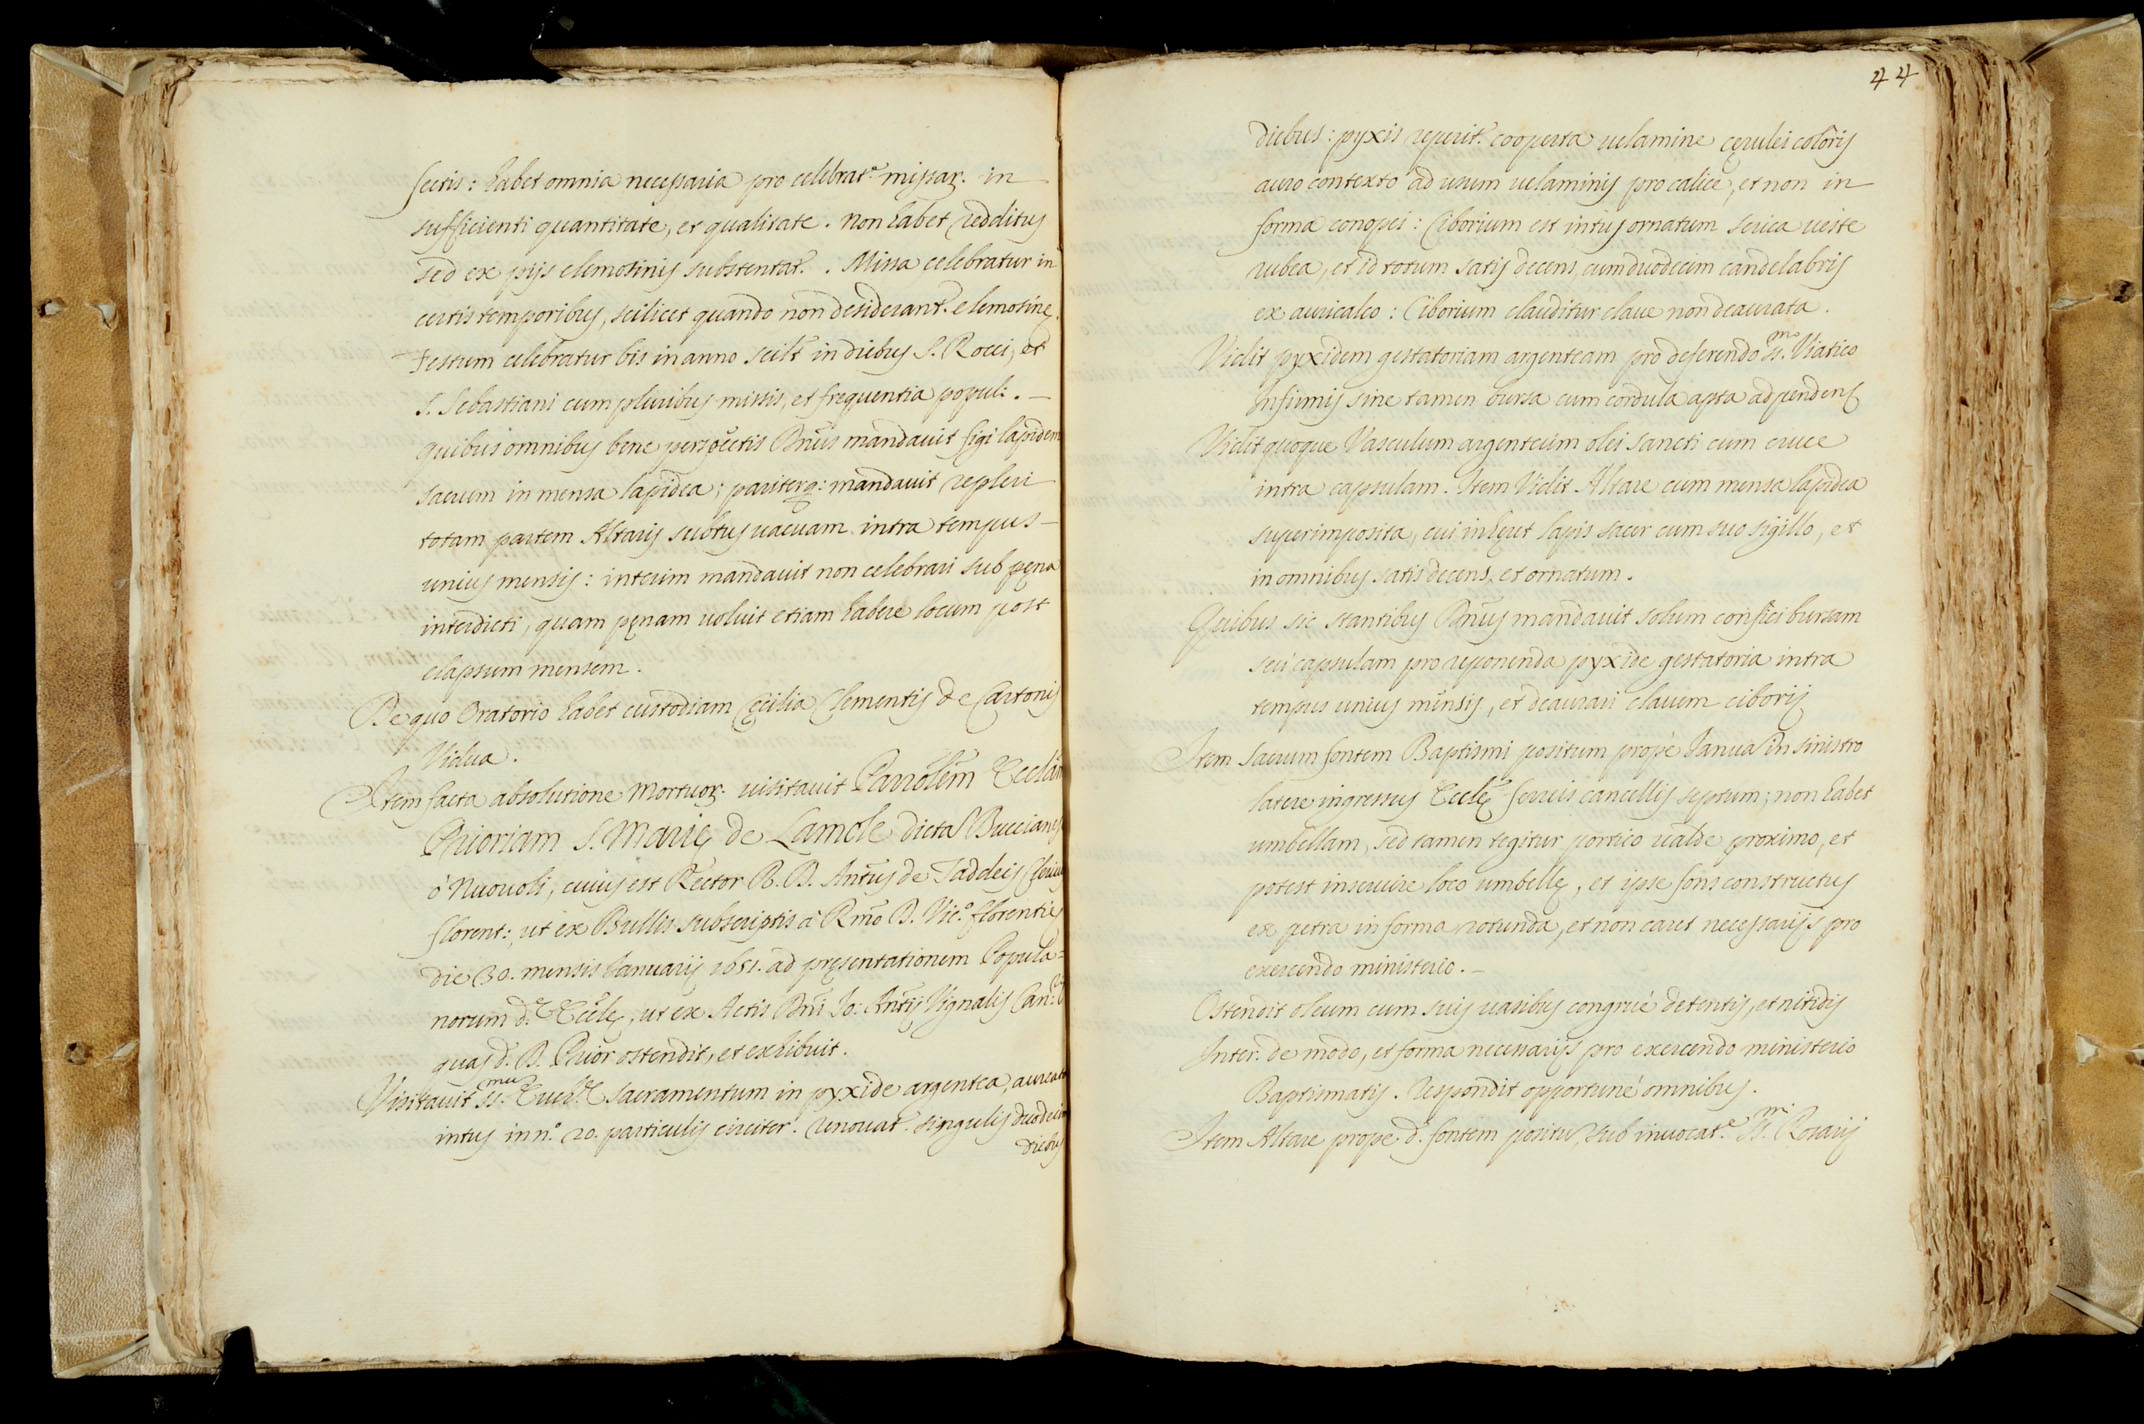 sectis: habet omnia necessaria pro celebrat.e missar. in
sufficienti quantitate, et qualitate. Non habet redditus
sed ex pijs elemosinis substentat.r. Missa celebratur in
certis temporibus, scilicet quando non desiderant.r elemosinę.
Festum celebratur bis in anno scilt in diebus S. Rocci, et
S. Sebastiani cum pluribus missis, et frequentia popul: . —
Quibus omnibus bene perspectis Dñus mandavit figi lapidem
sacrum in mensa lapidea; pariterq: mandavit repleri
totam partem Altaris subtus vacuam intra tempus —
unius mensis: interim mandavit non celebrari sub pęna
interdicti, quam pęnam voluit etiam habere locum post
elapsum mensem.
De quo Oratorio habet custodiam Cęcilia Clementis de Cartonis
Vidua.
Item facta absolutione Mortuor. visitavit Parrõlem Ecclãm
Prioriam S. Marię de Lamole dicta Buccianes
ò Nuovoli, cuius est Rector R. D. Antũs de Taddeis
florent: , ut ex Bullis subscriptis à Rmo D. Vic.o florentię
die 30. mensis Januarij 1651. ad pręsentationem Popula=
norum d. Ecclę, ut ex Actis Dñi Io: Antij Vignalis Can:
quas d. D. Prior ostendit, et exhibuit.
Visitavit SS.mu Euch. Sacramentum in pyxide argentea, aureata
intus in n.o 20. particulis circiter. renovat.r singulis duodecim
diebus
44
diebus: pyxis reperit.r cooperta velamine cęrulei coloris
auro contexto ad usum velaminis pro calice, et non in
forma conopei: Ciborium est intus ornatum serica veste
rubea, et id totum satis decens, cum duodecim candelabris
ex auricalco: Ciborium clauditur clave non deaurata.
Vidit pyxidem gestatoriam argenteam pro deferendo SS.mo Viatico
Infirmis sine tamen bursa cum cordula apta ad pendens
Vidit quoque Vasculum argenteum olei sancti cum cruce
intra capsulam. Item Vidit Altare cum mensa lapidea
superimposita, cui inhęret lapis sacer cum suo sigillo, et
in omnibus satis decens, et ornatum.
Quibus sic stantibus Dñus mandavit solum confici bursam
seu capsulam pro reponenda pyxide gestatoria intra
tempus unius mensis, et deaurari clavem ciborij
Item Sacrum fontem Baptismi positum propè Ianua in sinistro
latere ingressus Ecclę ferreis cancellis septum; non habet
umbellam, sed tamen tegitur portico valde proximo, et
potest inservire loco umbellę, et ipse fons constructus
ex petra in forma rotunda, et non caret necessarijs pro
exercendo ministerio. —
Ostendit oleum cum suis vasibus congruè detentis, et nitidis
Inter: de modo, et forma necessarijs pro exercendo ministerio
Baptismatis. respondit opportunè omnibus.
Item Altare prope d. fontem positu, sub invocat.e SS.mi Rosarij